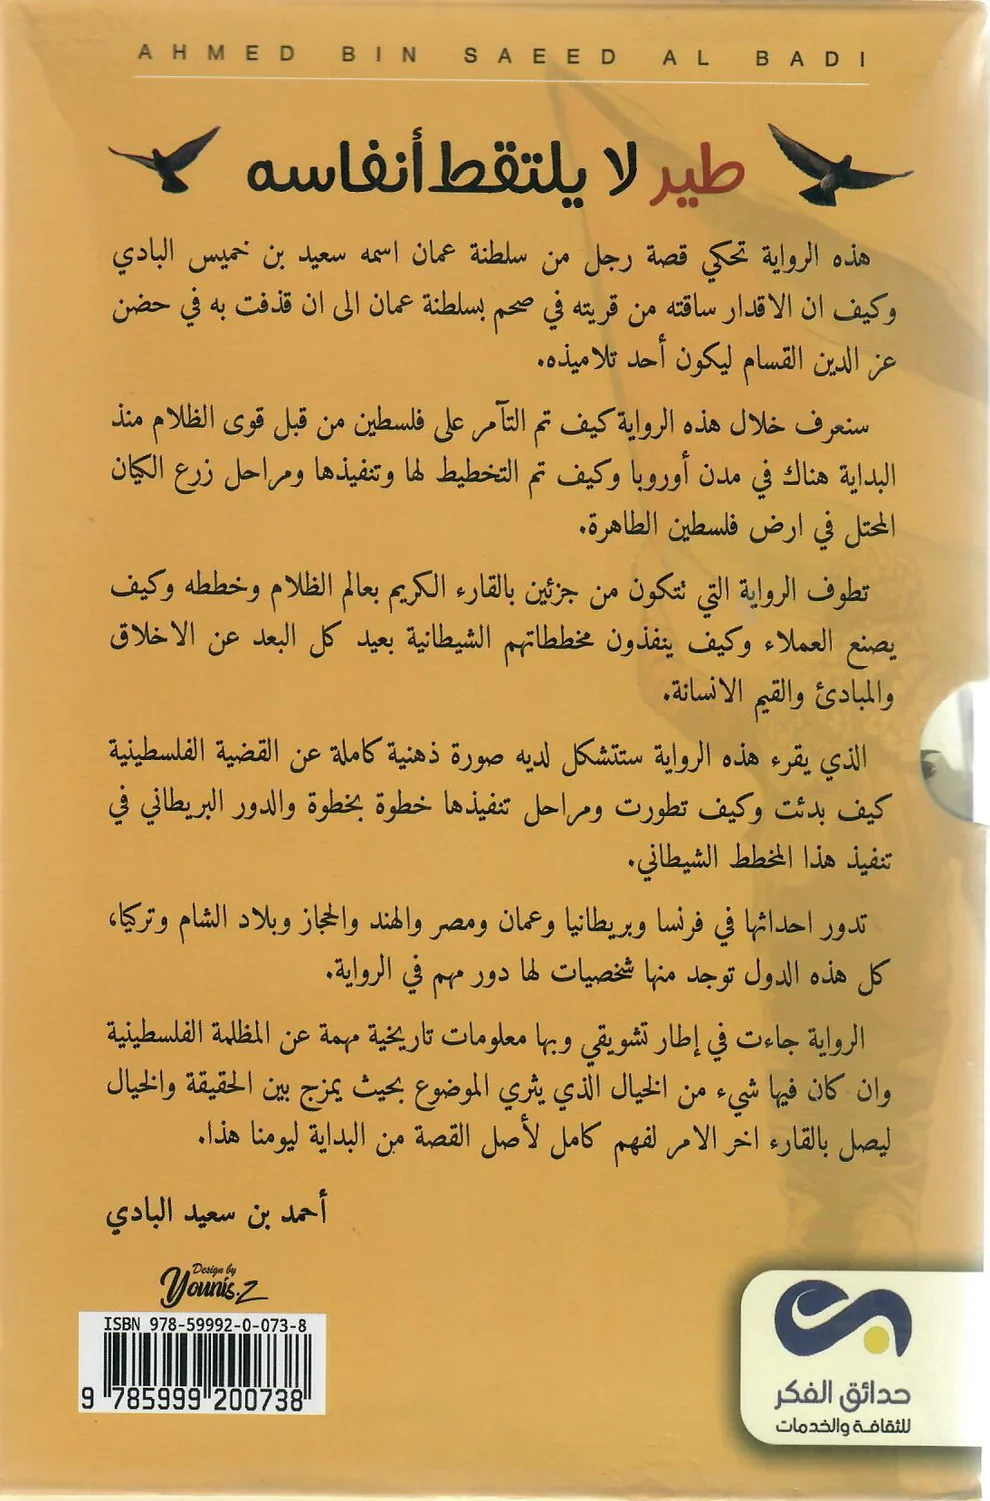 AHMED BIN SAEED AL BADI
طير لا يلتقط أنفاسه
هذه الرواية تحكي قصة رجل من سلطنة عمان اسمه سعيد بن خميس البادي
وكيف ان الاقدار ساقته من قريته في صحم بسلطنة عمان الى ان قذفت به في حضن
عز الدين القسام ليكون أحد تلاميذه.
سنعرف خلال هذه الرواية كيف تم التآمر على فلسطين من قبل قوى الظلام منذ
البداية هناك في مدن أوروبا وكيف تم التخطيط لها وتنفيذها ومراحل زرع الكيان
المحتل في ارض فلسطين الطاهرة.
تطوف الرواية التي تتكون من جزئين بالقارء الكريم بعالم الظلام وخططه وكيف
يصنع العملاء وكيف ينفذون مخططاتهم الشيطانية بعيد كل البعد عن الاخلاق
والمبادئ والقيم الانسانة.
الذي يقرء هذه الرواية ستتشكل لديه صورة ذهنية كاملة عن القضية الفلسطينية
كيف بدئت وكيف تطورت ومراحل تنفيذها خطوة بخطوة والدور البريطاني في
تنفيذ هذا المخطط الشيطاني.
تدور احداثها في فرنسا وبريطانيا وعمان ومصر والهند والحجاز وبلاد الشام وتركيا،
كل هذه الدول توجد منها شخصيات لها دور مهم في الرواية.
الرواية جاءت في إطار تشويقي وبها معلومات تاريخية مهمة عن المظلمة الفلسطينية
وان كان فيها شيء من الخيال الذي يثري الموضوع بحيث يمزج بين الحقيقة والخيال
ليصل بالقارء اخر الامر لفهم كامل لأصل القصة من البداية ليومنا هذا.
أحمد بن سعيد البادي
Design by
Younis.Z
ISBN 978-59992-0-073-8
9 785999 200738
حدائق الفكر
للثقافة والخدمات